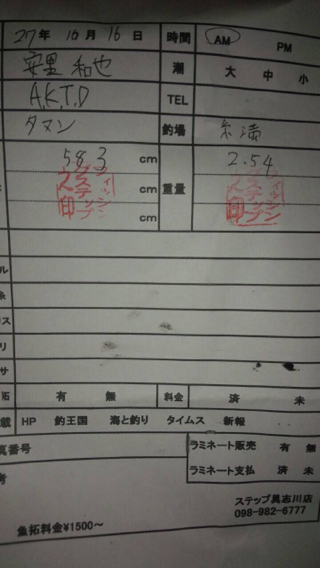 2017年 10月 16日 時間 AM PM
安里 和也 潮 大 中 小
A.K.T.D TEL
タマン 釣場 糸満
58.3 cm 2.54
cm 重量
cm
ル
糸
ス
リ
サ
拓 有 無 料金 済 未
載 HP 釣王国 海と釣り タイムス 新報
真番号 ラミネート販売 有 無
考 ラミネート支払 済 未
ステップ具志川店
098-982-6777
魚拓料金¥1500~